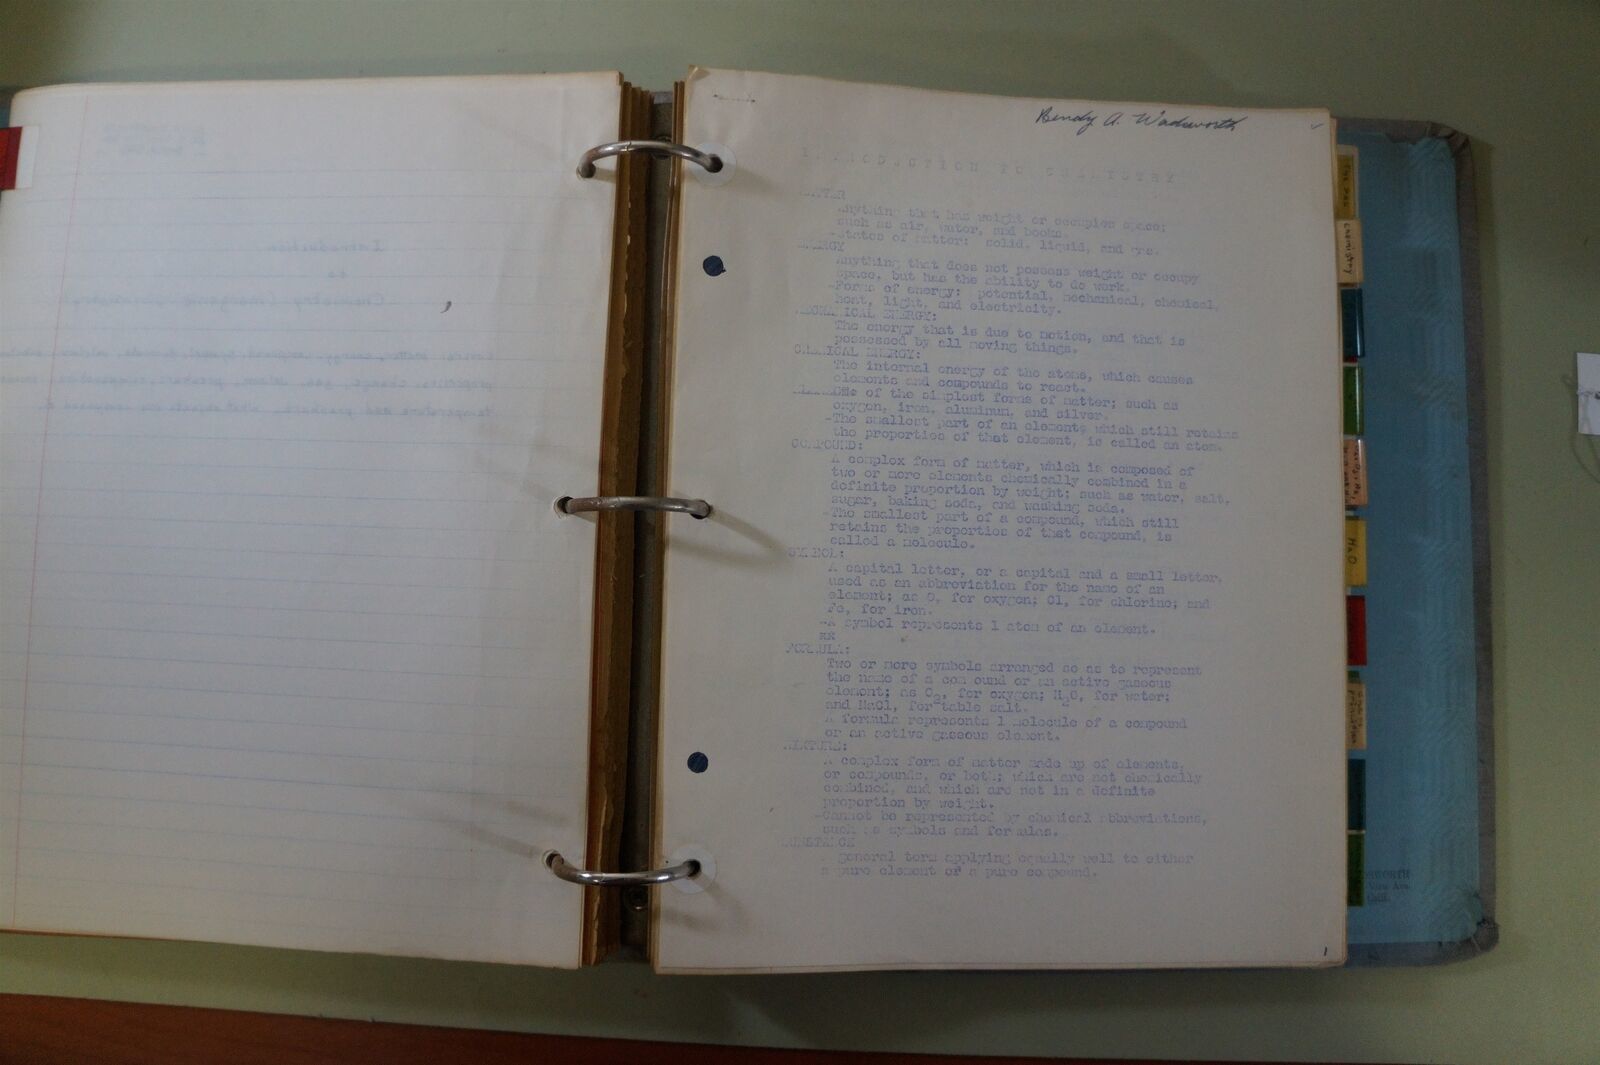 Bendy A. Wadsworth
INTRODUCTION TO CHEMISTRY
MATTER
Anything that has weight or occupies space;
such as air, water, and books.
-States of matter: solid, liquid, and gas.
ENERGY
Anything that does not possess weight or occupy
space, but has the ability to do work.
-Forms of energy: potential, mechanical, chemical,
heat, light, and electricity.
MECHANICAL ENERGY:
The energy that is due to motion, and that is
possessed by all moving things.
CHEMICAL ENERGY:
The internal energy of the atoms, which causes
elements and compounds to react.
of the simplest forms of matter; such as
oxygen, iron, aluminum, and silver.
-The smallest part of an element, which still retains
the properties of that element, is called an atom.
COMPOUND:
A complex form of matter, which is composed of
two or more elements chemically combined in a
definite proportion by weight; such as water, salt,
sugar, baking soda, and washing soda.
-The smallest part of a compound, which still
retains the properties of that compound, is
called a molecule.
SYMBOL:
A capital letter, or a capital and a small letter,
used as an abbreviation for the name of an
element; as O, for oxygen; Cl, for chlorine; and
Fe, for iron.
-A symbol represents 1 atom of an element.
FORMULA:
Two or more symbols arranged so as to represent
the name of a com ound or an active gaseous
element; as O2, for oxygen; H2O, for water;
and NaCl, for table salt.
A formula represents 1 molecule of a compound
or an active gaseous element.
MIXTURE:
A complex form of matter made up of elements,
or compounds, or both; which are not chemically
combined, and which are not in a definite
proportion by weight.
-Cannot be represented by chemical abbreviations,
such as symbols and formulas.
SUBSTANCE
A general term applying equally well to either
a pure element or a pure compound.
1
Chemistry
H2O
SWORTH
View Ave.
Calif.